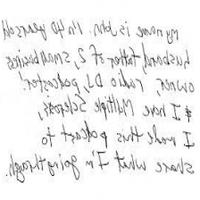 my name is John. I'm 40 years old
husband, father of 2, small business
owner, radio DJ, podcaster!
& I have Multiple Sclerosis,
I made this podcast to
share what I'm going through.